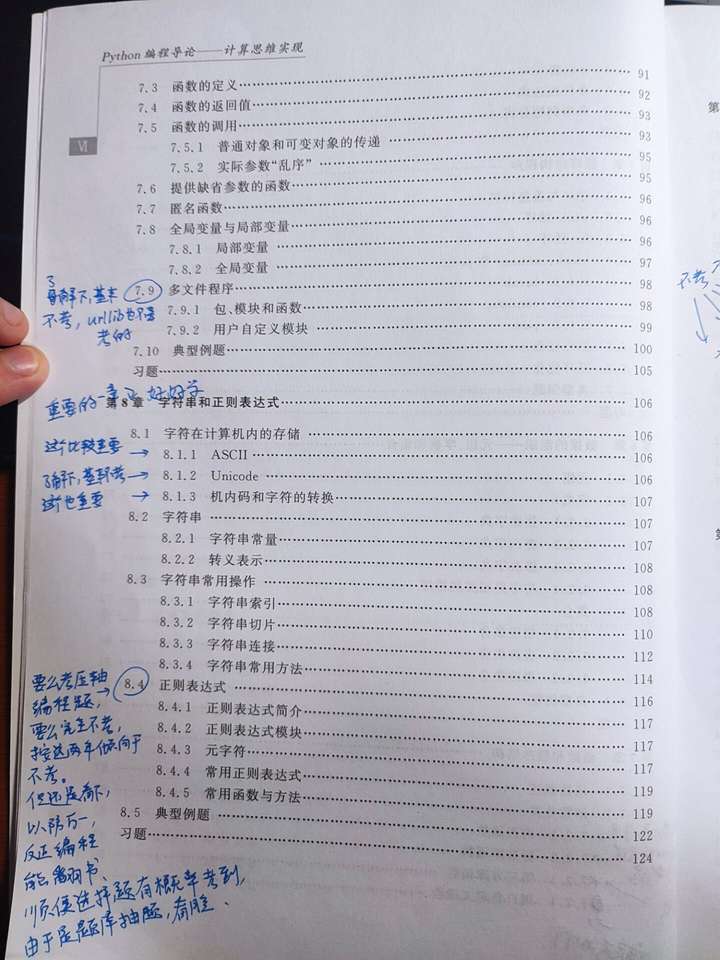 Python 编程导论——计算思维实现
Ⅵ
7.3 函数的定义 91
7.4 函数的返回值 92
7.5 函数的调用 93
7.5.1 普通对象和可变对象的传递 93
7.5.2 实际参数“乱序” 95
7.6 提供缺省参数的函数 95
7.7 匿名函数 96
7.8 全局变量与局部变量 96
7.8.1 局部变量 96
7.8.2 全局变量 97
7.9 多文件程序 98
7.9.1 包、模块和函数 98
7.9.2 用户自定义模块 99
7.10 典型例题 100
习题 105
了
解下,基本
不考,urllib也不
考的
重要的一章了,好好学
第8章 字符串和正则表达式 106
8.1 字符在计算机内的存储 106
这个比较重要 → 8.1.1 ASCII 106
了解下,基本 考 → 8.1.2 Unicode 106
这个也重要 → 8.1.3 机内码和字符的转换 107
8.2 字符串 107
8.2.1 字符串常量 107
8.2.2 转义表示 108
8.3 字符串常用操作 108
8.3.1 字符串索引 108
8.3.2 字符串切片 110
8.3.3 字符串连接 112
8.3.4 字符串常用方法 114
8.4 正则表达式 116
8.4.1 正则表达式简介 117
8.4.2 正则表达式模块 117
8.4.3 元字符 117
8.4.4 常用正则表达式 119
8.4.5 常用函数与方法 119
8.5 典型例题 122
习题 124
要么考压轴
编程题, →
要么完全不考,
按这两年倾向于
不考。
但还是看下,
以防万一,
反正编程
能翻书、
顺便选择题有概率考到,
由于是题库抽题,有
不考